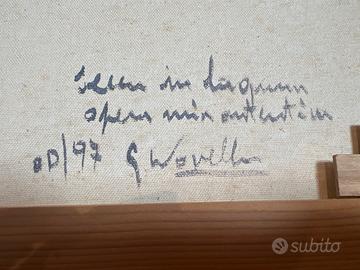 in laguna
opera mia autentica
/97 G Novello
subito